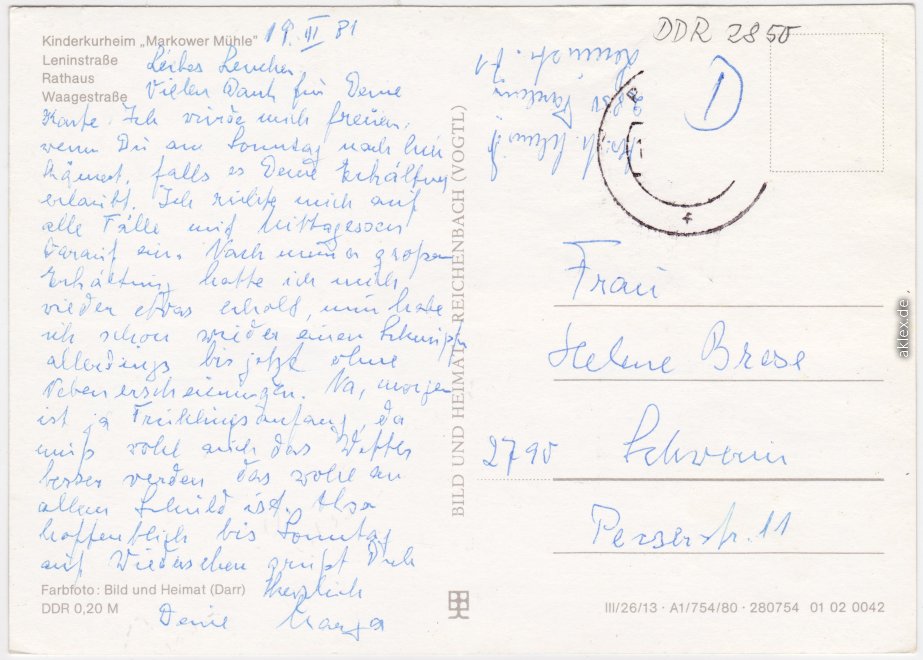 Kinderkurheim „Markower Mühle"
Leninstraße
Rathaus
Waagestraße
19. III 81
Liebes Lenchen,
Vielen Dank für Deine
Karte. Ich würde mich freuen,
wenn Du am Sonntag nach hier
kämest, falls es Deine Erkältung
erlaubt. Ich richte mich auf
alle Fälle mit Mittagessen
darauf ein. Nach meiner großen
Erkältung hatte ich mich
wieder etwas erholt, nun habe
ich schon wieder einen Schnupfen
allerdings bis jetzt ohne
Nebenerscheinungen. Na, morgen
ist ja Frühlingsanfang, da
muß wohl auch das Wetter
besser werden das wohl an
allem Schuld ist. Also
hoffentlich bis Sonntag
auf Wiedersehen grüßt Dich
Herzlich
Deine
Farbfoto: Bild und Heimat (Darr)
DDR 0,20 M
BILD UND HEIMAT REICHENBACH (VOGTL)
DDR 2850
D
2850 Parchim
Leninstr. 71
Frau
Helene Brese
2790 Schwerin
Perserstr. 11
III/26/13 · A1/754/80 · 280754 01 02 0042
aklex.de